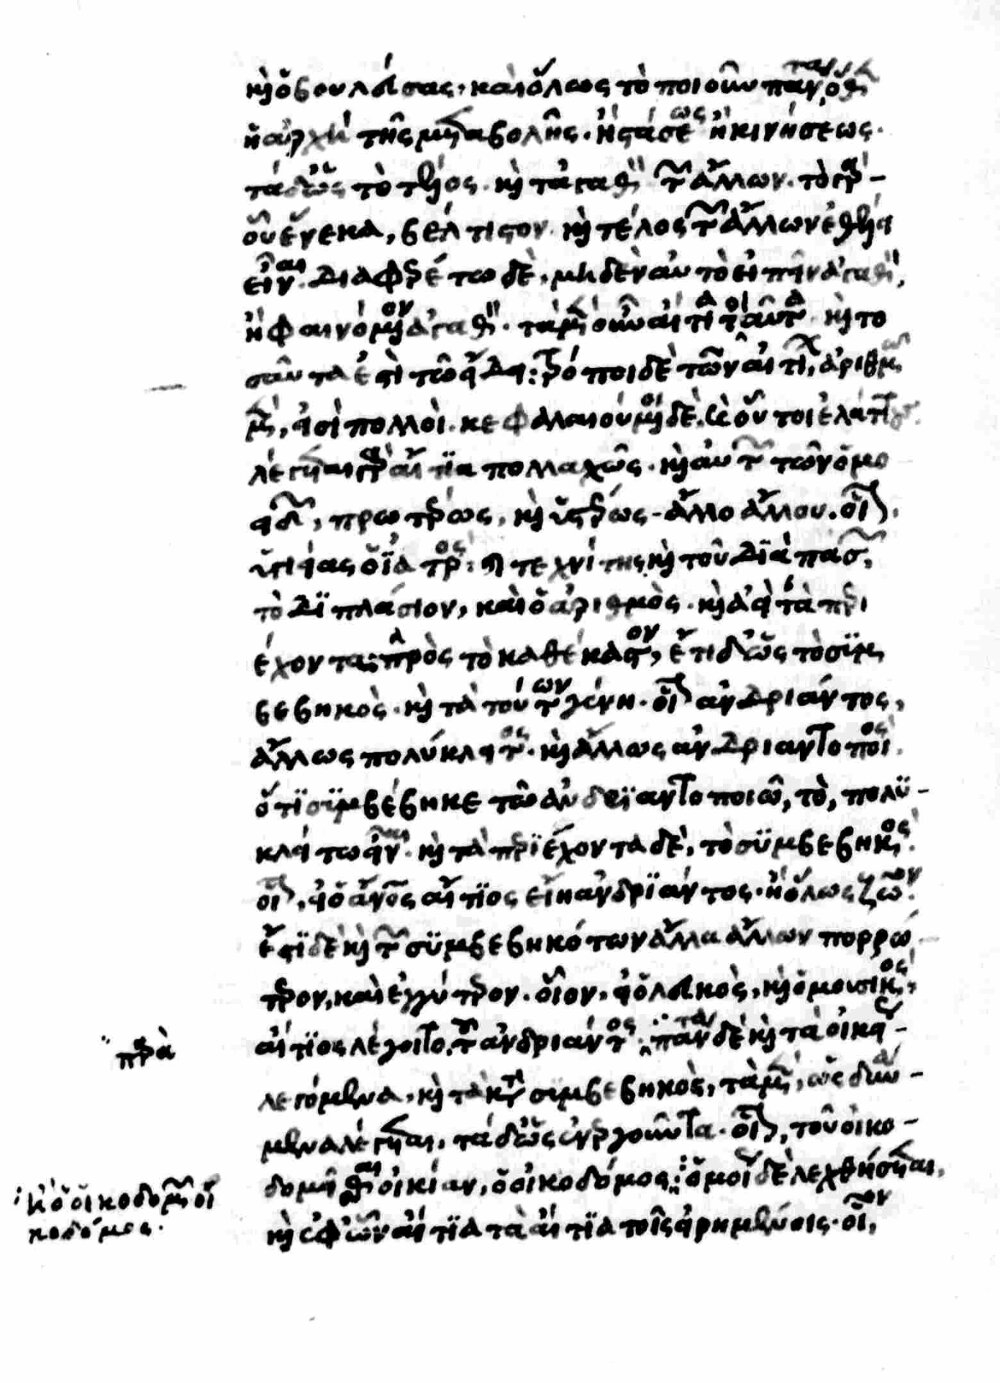 καὶ ὁ βουλεύσας, καὶ ὅλως τὸ ποιοῦν πάντα ὅθεν
ἡ ἀρχὴ τῆς μεταβολῆς. ἢ στάσεως ἢ κινήσεως.
τὰ δ' ὡς τὸ τέλος. καὶ τἀγαθὸν τῶν ἄλλων. τὸ γὰρ
οὗ ἕνεκα, βέλτιστον. καὶ τέλος τῶν ἄλλων ἐθέλει
εἶναι. διαφερέτω δὲ, μηδὲν αὐτὸ εἰπεῖν ἀγαθὸν,
ἢ φαινόμενον ἀγαθὸν. τὰ μὲν οὖν αἴτια ταῦτα καὶ το
σαῦτα ἐστὶ τῶ εἴδει: τρόποι δὲ τῶν αἰτίων, ἀριθμῶ
μὲν, εἰσὶ πολλοὶ. κεφαλαιούμενοι δὲ καὶ οὗτοι ἐλάττους.
λέγεται γὰρ αἴτια πολλαχῶς. καὶ αὐτῶν τῶν ὁμο
ειδῶν, προτέρως, καὶ ὑστέρως ἄλλο ἄλλου. οἷον,
ὑγιείας ὁ ἰατρὸς καὶ τεχνίτης. καὶ τοῦ διὰ πασῶν,
τὸ διπλάσιον, καὶ ὁ ἀριθμὸς. καὶ ἀεὶ τὰ περι
έχοντα: πρὸς τὸ καθέκαστον, ἔτι δ' ὡς τὸ συμ
βεβηκὸς. καὶ τὰ τούτων γένη. οἷον ἀνδριάντος,
ἄλλως πολύκλειτος. καὶ ἄλλως ἀνδριαντοποιός.
ὅτι συμβέβηκε τῶ ἀνδριαντοποιῶ, τὸ, πολυ-
κλείτω εἶναι. καὶ τὰ περιέχοντα δὲ, τὸ συμβεβηκός.
οἷον, εἰ ὁ ἄνθρωπος αἴτιος εἴη ἀνδριάντος. ἢ ὅλως ζῶον.
ἔστι δὲ καὶ τῶν συμβεβηκότων ἄλλα ἄλλων πορρώ
τερον, καὶ ἐγγύτερον. οἷον, εἰ ὁ λευκὸς, καὶ ὁ μουσικός,
αἴτιος λέγοιτο τοῦ ἀνδριάντος. πάντα δὲ καὶ τὰ οἰκείως
λεγόμενα, καὶ τὰ κατὰ συμβεβηκὸς, τὰ μὲν, ὡς δυνά-
μενα λέγεται, τὰ δ' ὡς ἐνεργοῦντα. οἷον, τοῦ οἰκο-
δομεῖσθαι οἰκίαν, ὁ οἰκοδόμος: ὁμοίως δὲ λεχθήσεται,
καὶ ἐφ' ὧν αἴτια τὰ αἴτια τοῖς εἰρημένοις. οἷον,
παρὰ
ἢ ὁ οἰκοδομῶν οἰ
κοδόμος.